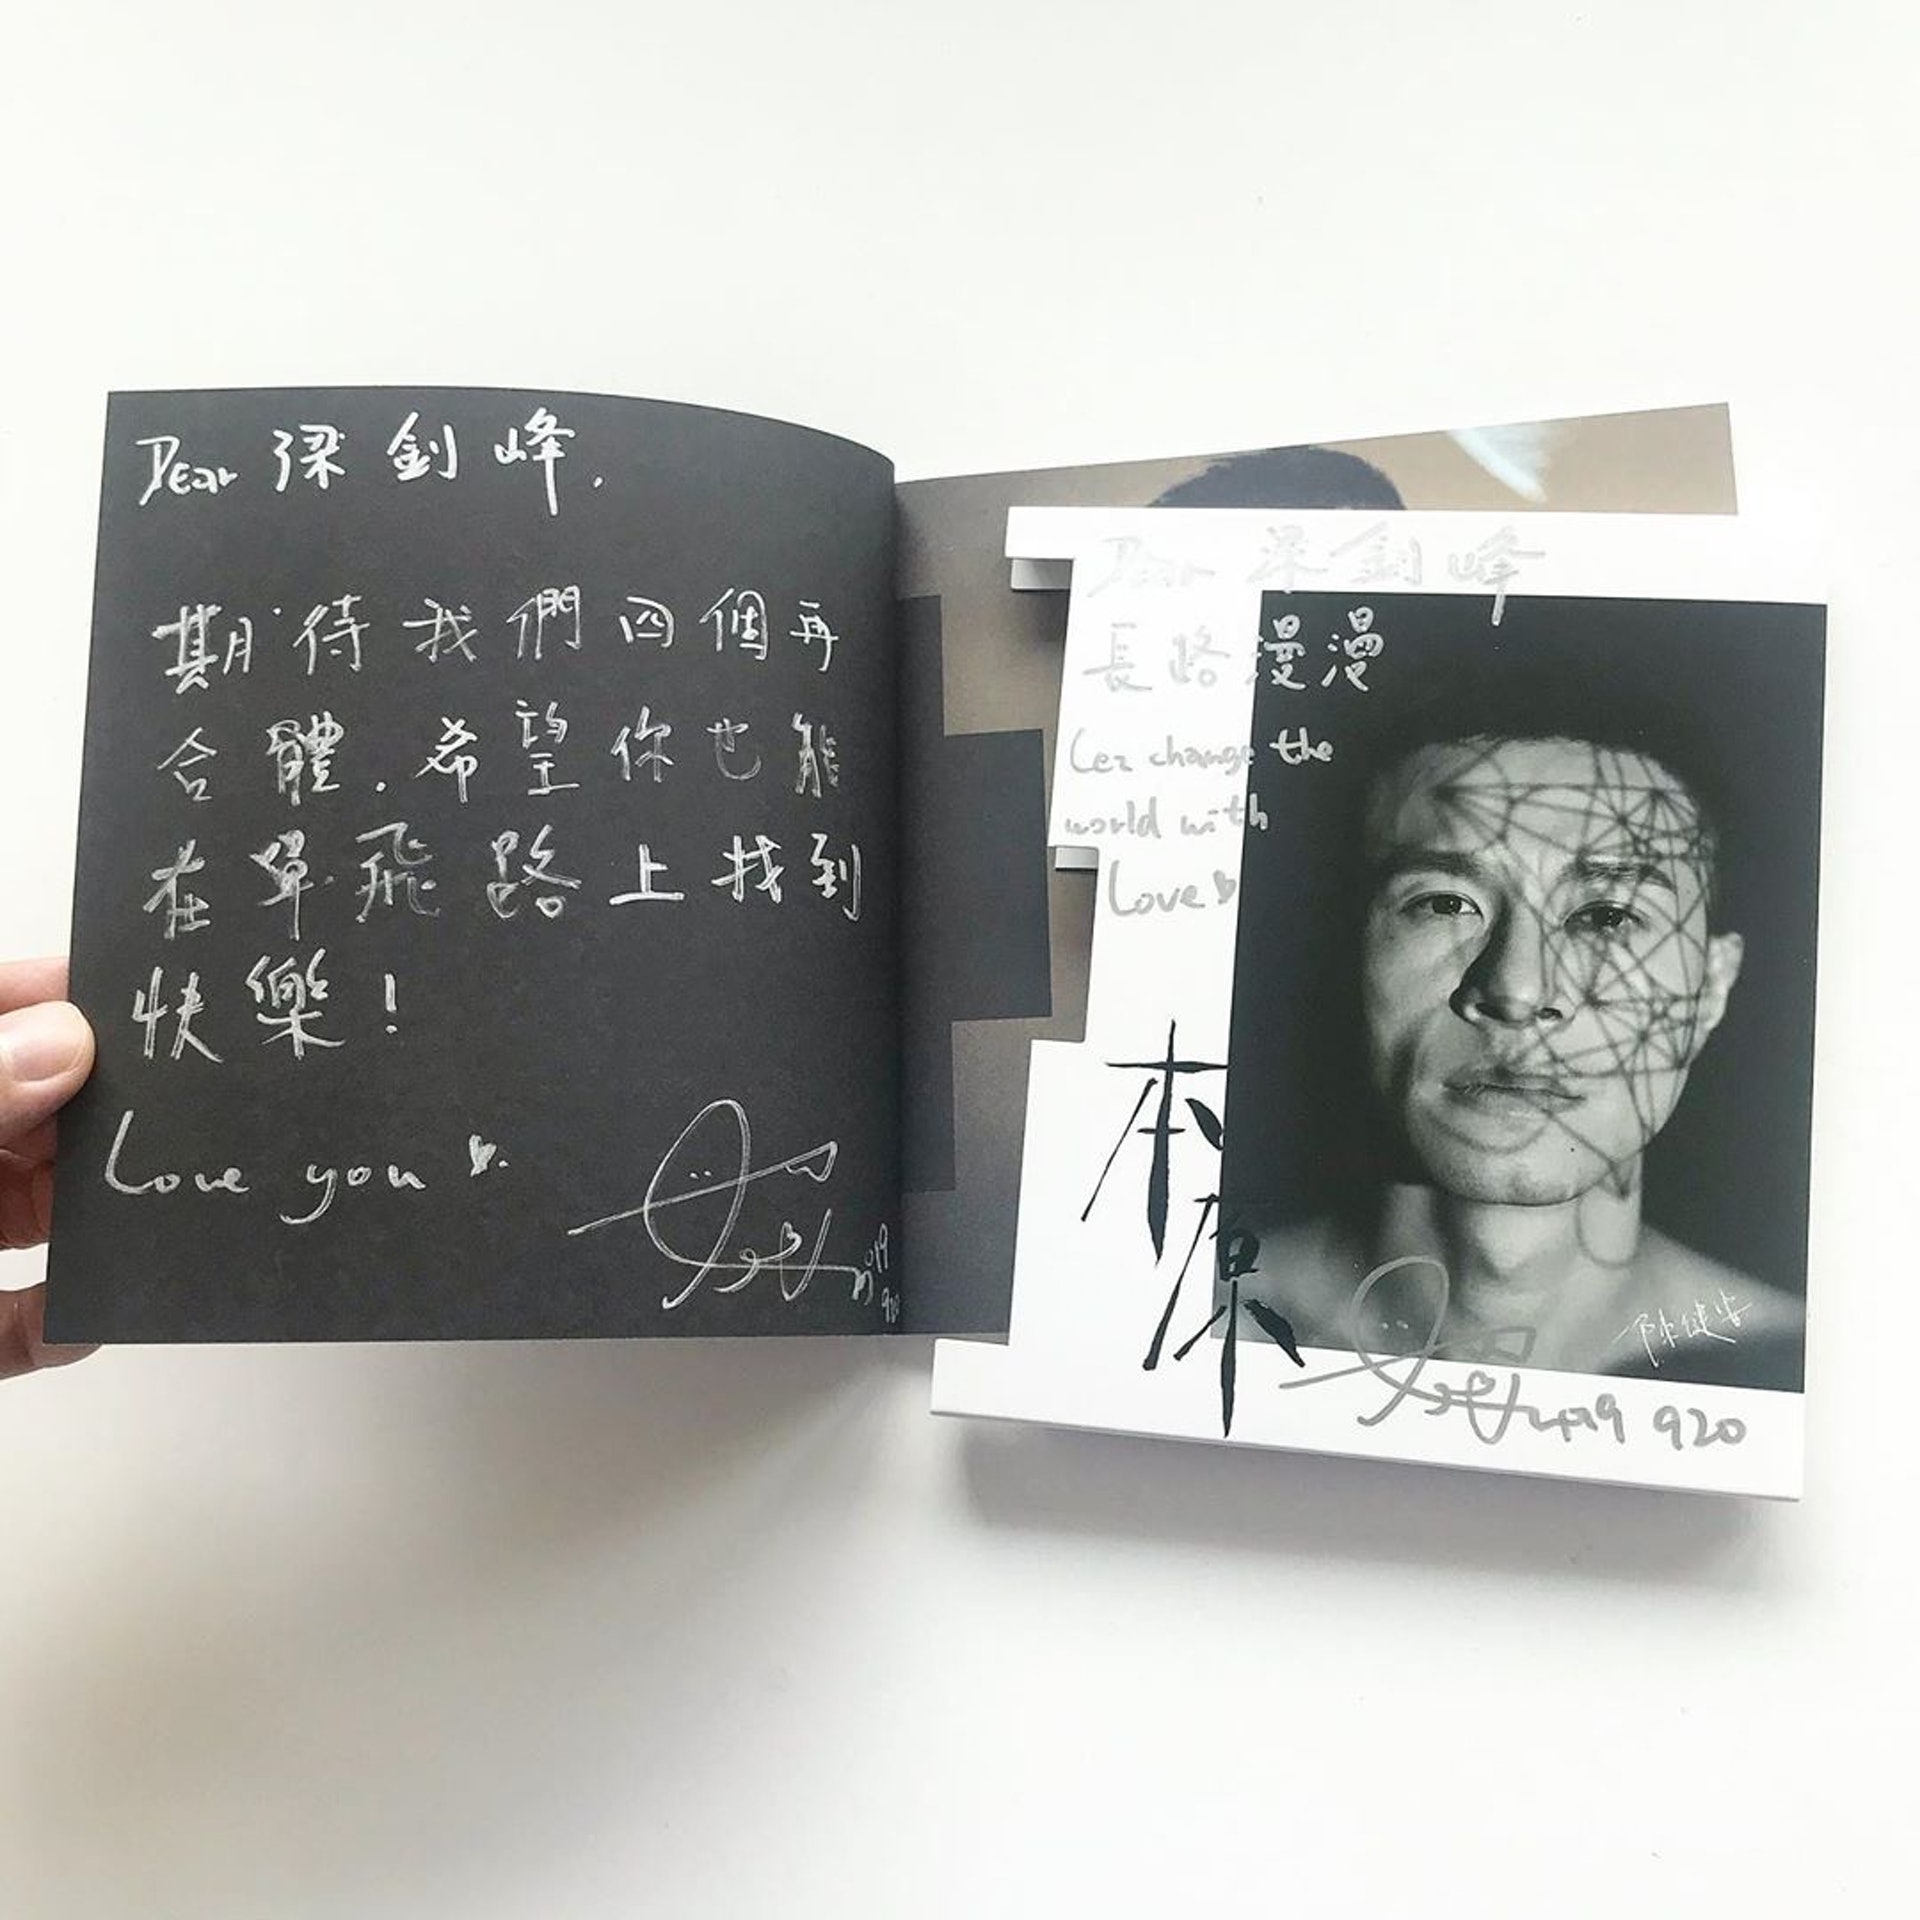 Dear 梁釗峰,
期待我們四個再
合體.希望你也能
在單飛路上找到
快樂!
Love you
2019
920
Dear 梁釗峰
長路漫漫
Lez change the
world with
Love
本
原
陳健安
2019 920